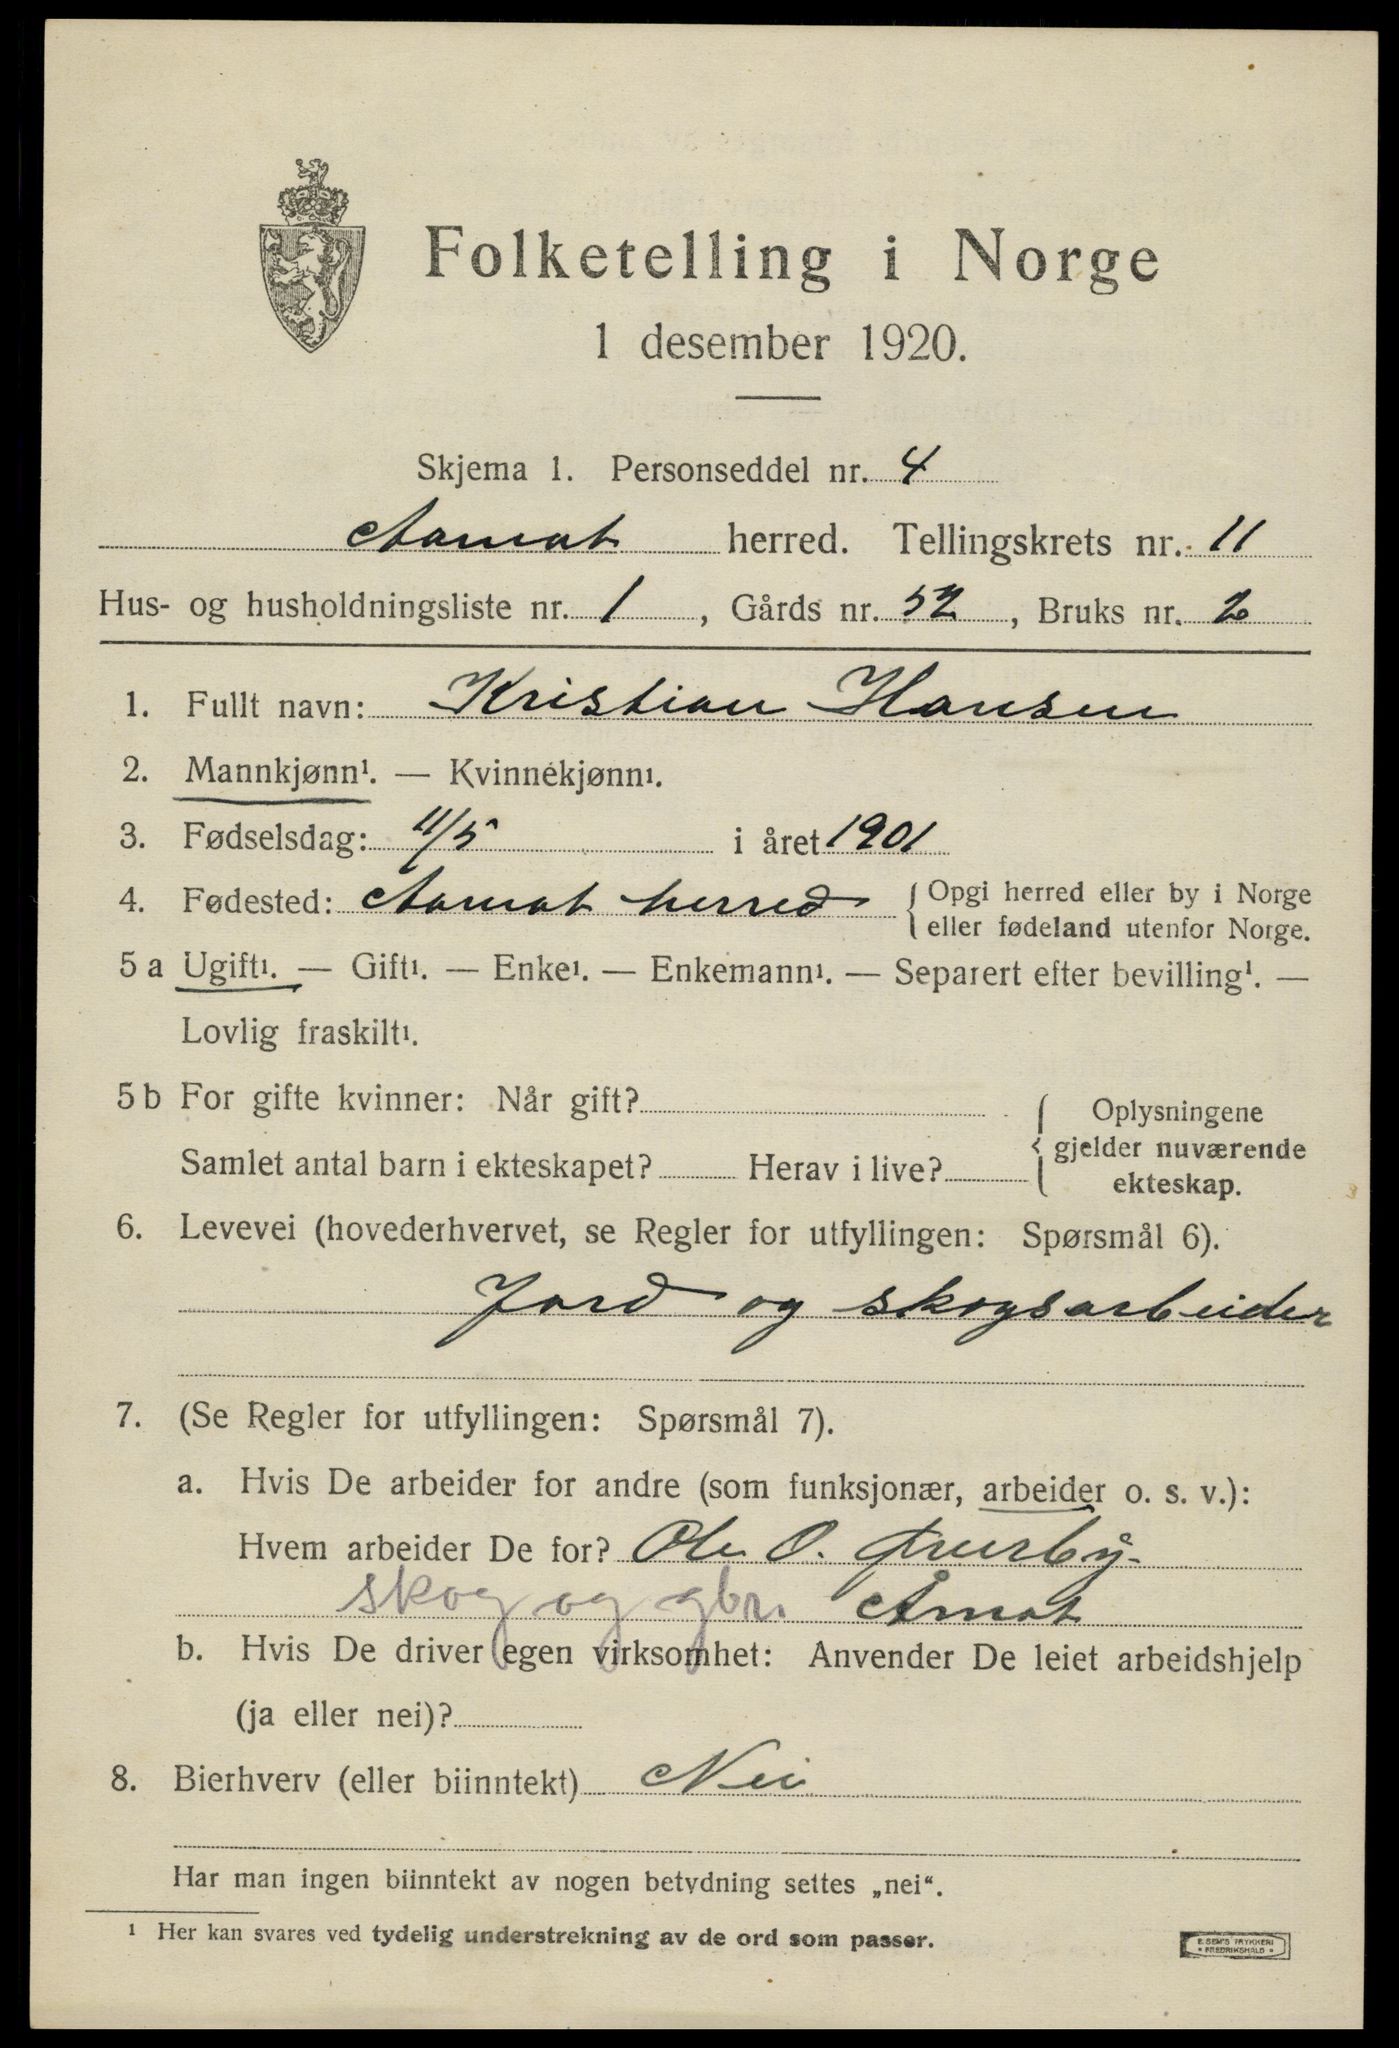 Folketelling i Norge
1 desember 1920.
Skjema 1. Personseddel nr. 4
Aamot herred. Tellingskrets nr. 11
Hus- og husholdningsliste nr. 1, Gårds nr. 52, Bruks nr. 2
1. Fullt navn: Kristian Hansen
2. Mannkjønn¹. — Kvinnekjønn¹.
3. Fødselsdag: 11/5 i året 1901
4. Fødested: Aamot herred { Opgi herred eller by i Norge
eller fødeland utenfor Norge.
5 a Ugift¹. — Gift¹. — Enke¹. — Enkemann¹. — Separert efter bevilling¹. —
Lovlig fraskilt¹.
5 b For gifte kvinner: Når gift?
Samlet antal barn i ekteskapet? Herav i live?
{ Oplysningene
gjelder nuværende
ekteskap.
6. Levevei (hovederhvervet, se Regler for utfyllingen: Spørsmål 6).
Jord og skogsarbeider
7. (Se Regler for utfyllingen: Spørsmål 7).
a. Hvis De arbeider for andre (som funksjonær, arbeider o. s. v.):
Hvem arbeider De for? Ole O.
skog og gbr. Åmot
b. Hvis De driver egen virksomhet: Anvender De leiet arbeidshjelp
(ja eller nei)?
8. Bierhverv (eller biinntekt) Nei
Har man ingen biinntekt av nogen betydning settes „nei“.
¹ Her kan svares ved tydelig understrekning av de ord som passer.
E. SEM'S TRYKKERI
FREDRIKSHALD